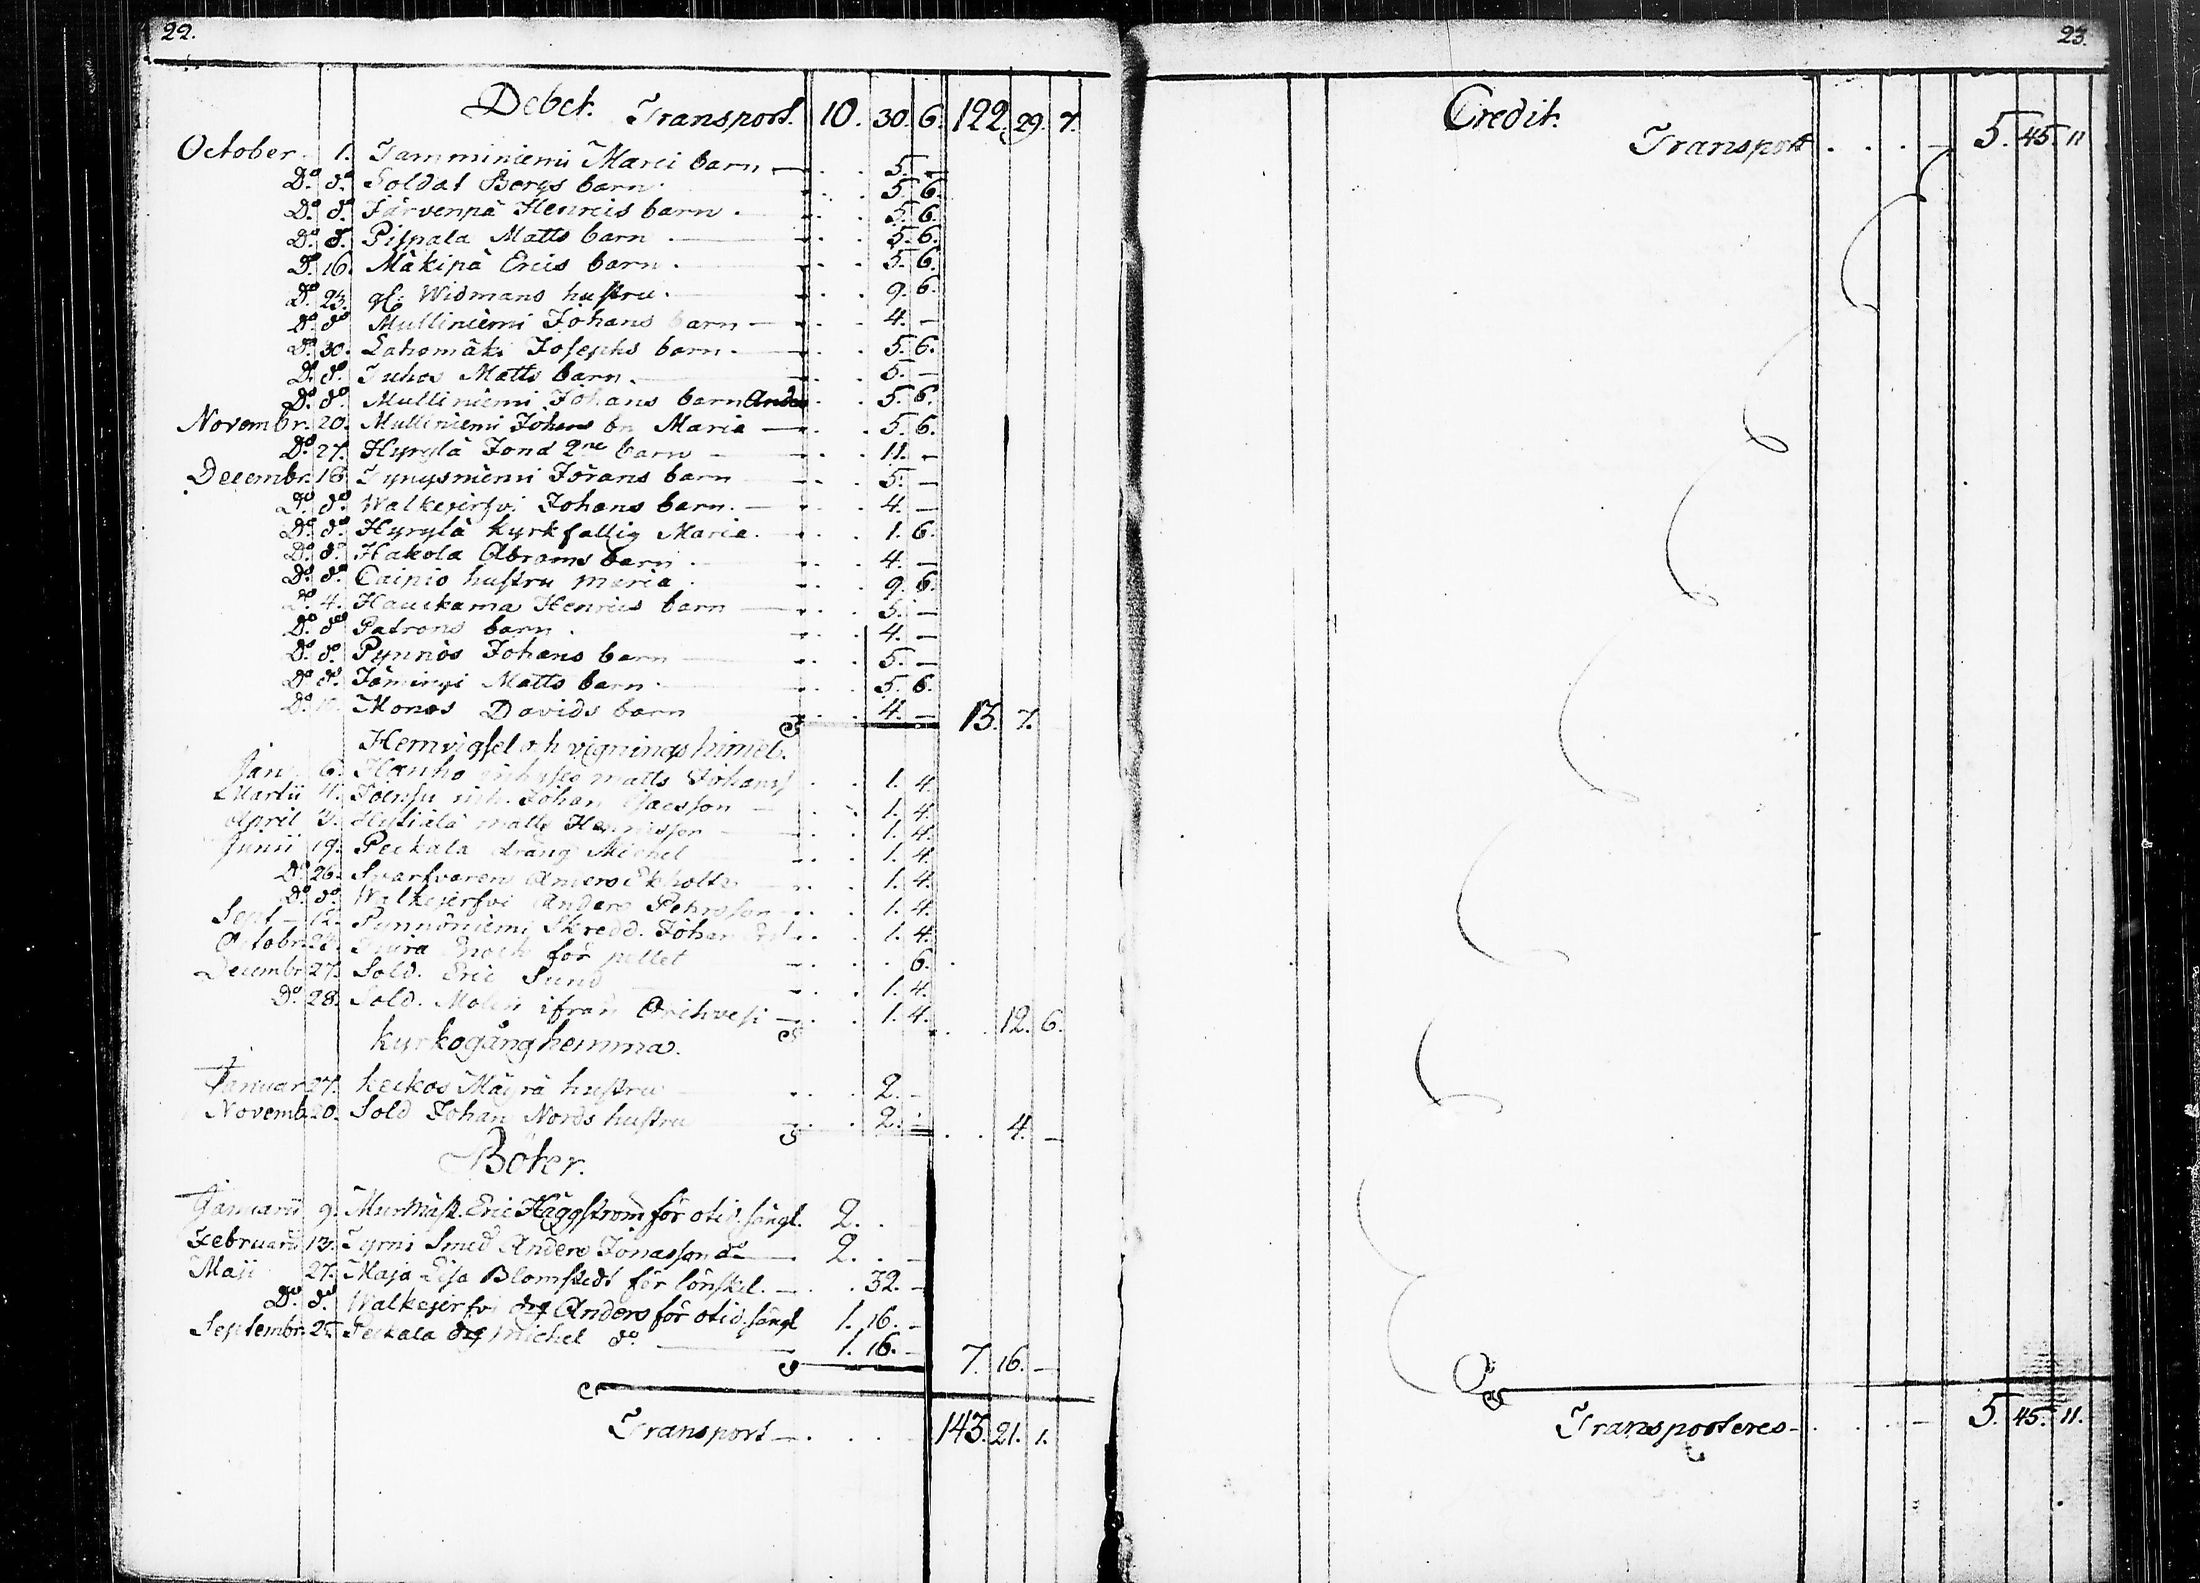 22.
Debet. Transport. 10. 30. 6. 122. 29. 7.
October 1. Tamminiemi Marci barn 5. —
Do. do. Soldat Bergs barn 5. 6.
Do. do. Järvenpä Henrics barn. 5. 6.
Do. do. Pispala Matts barn. 5. 6.
Do. 16. Mäkipä Erics barn. 5. 6.
Do. 23. gl. Widmans hustru. 9. 6.
Do. do. Mulliniemi Johans barn 4. —
Do. 30. Lahomäki Josephs barn. 5. 6.
Do. do. Juhos Matts barn. 5. —
Do. do. Mulliniemi Johans barn Anders 5. 6.
Novembr. 20. Mulliniemi Johans bn Maria 5. 6.
Do. 27. Hyrylä Jona 2ne barn 11. —
Decembr. 18. Tynysniemi Jörans barn 5. —
Do. do. Walkejerfvi Johans barn. 4. —
Do. do. Hyrylä kyrkfallig Maria. 1. 6.
Do. do. Hakola Abrams barn. 4. —
Do. do. Cainio hustru maria. 9. 6.
Do. 4. Hauckama Henrics barn 5. —
Do. do. Patrons barn. 4. —
Do. do. Pynnös Johans barn 5. —
Do. do. Jämingi Matts barn. 5. 6.
Do. Monos Davids barn 4. — 13. 7.
Hemvigsel och vignings himel.
Jan. 6. Hanho matts Johans 1. 4.
Martii 4. Joensu inh. Johan Isacsson 1. 4.
April 3. Hytialä matts Henricsson 1. 4.
Junii 19. Peckala dräng Michel 1. 4.
Do. 26. Svarfvaren Anders Ekholts 1. 4.
Do. do. Walkejerfvi Anders Pehrsson 1. 4.
Sept. 12. Punnöniemi Skredd. Johan 1. 4.
Octobr. Enoch för pellet 6.
Decembr. 27. Sold. Eric Sund 1. 4.
Do. 28. Sold. Molin ifrån Orihvesi 1. 4. 12. 6.
kyrkogång hemma.
Januar. 27. keckos Mäyrä hustru 2. —
Novemb. 20. Sold Johan Nords hustru 2. — 4. —
Böter.
Januarii 9. Murmäst. Eric Häggström för otid. sängl. 2. —
Februarii 13. Tyrni Smed Anders Jonasson do 2. —
Maji 27. Maja Lisa Blomstedt för lönskl. 32. —
Do. do. Walkejerfvi drg Anders för otid. sängl 1. 16. —
Septembr. 25. Peckala drg Michel do. 1. 16. — 7. 16. —
Transport 143. 21. 1.
23.
Credit.
Transport 5. 45. 11
Transporteres 5. 45. 11.